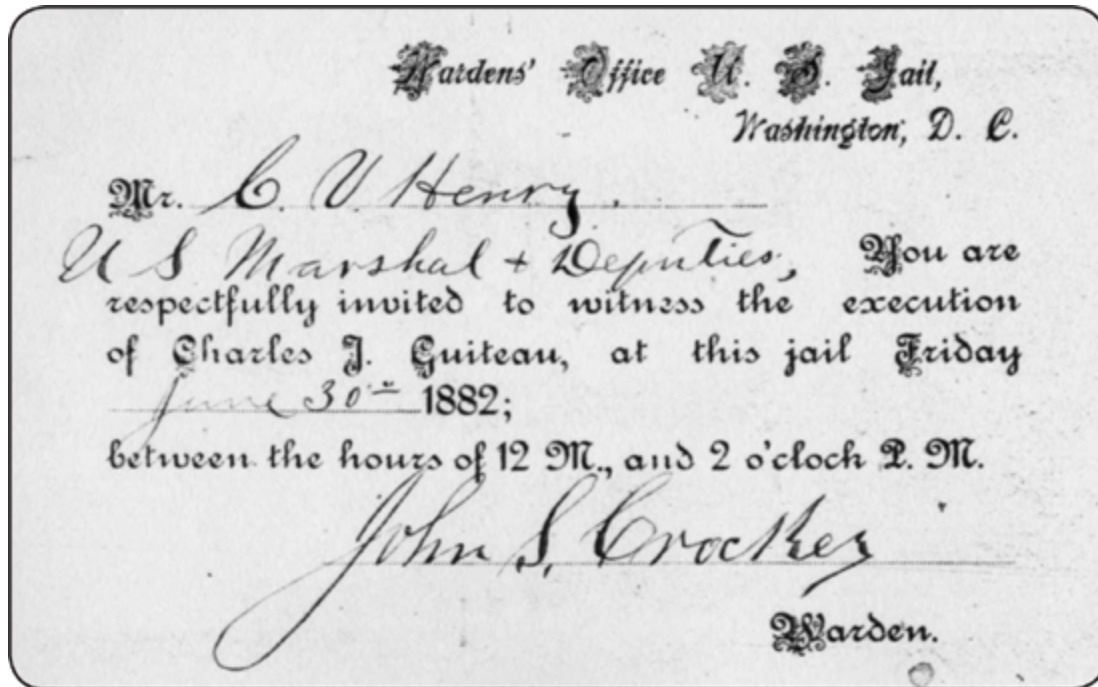 Wardens' Office U. S. Jail,
Washington, D. C.
Mr. C. V. Henry.
U S Marshal + Deputies, You are
respectfully invited to witness the execution
of Charles J. Guiteau, at this jail Friday
June 30th 1882;
between the hours of 12 M., and 2 o'clock P. M.
John S. Crocker
Warden.